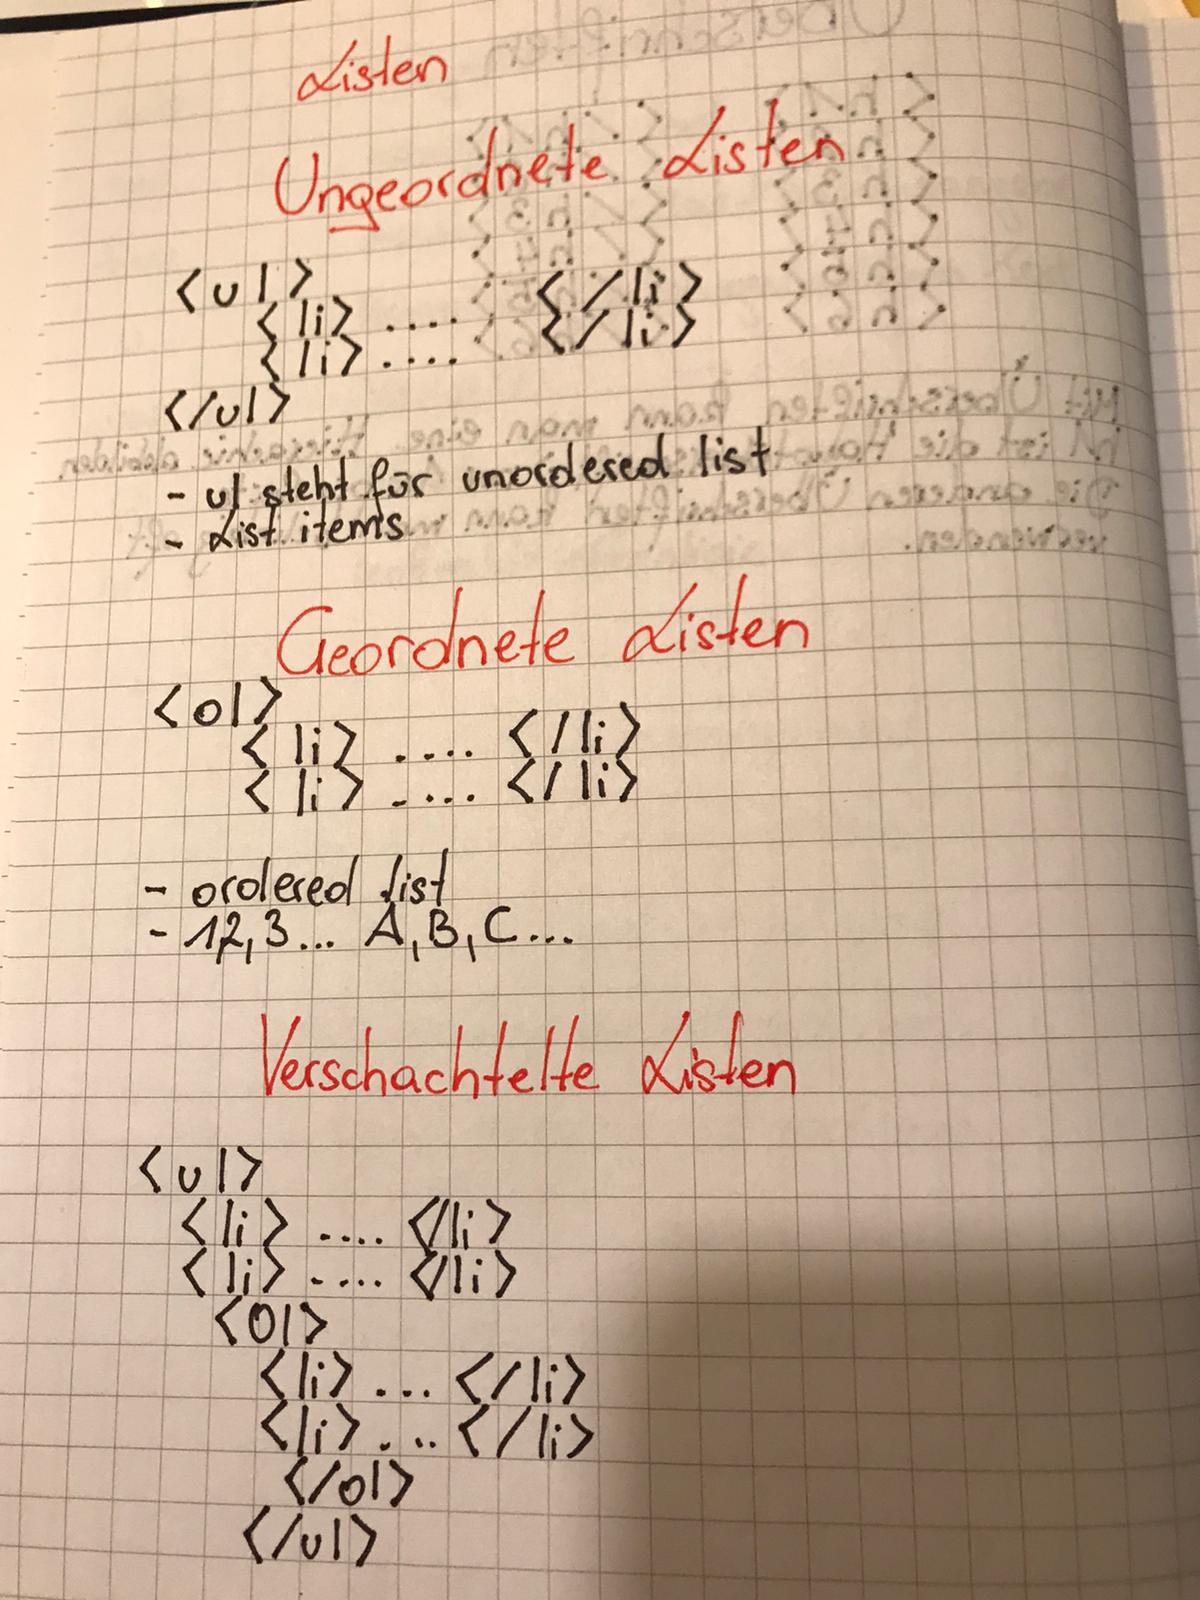 Listen
Ungeordnete Listen
<ul>
<li> .... </li>
<li> .... </li>
</ul>
- ul steht für unordered list
- List items
Geordnete Listen
<ol>
<li> .... </li>
<li> .... </li>
- ordered list
- 1,2,3... A,B,C...
Verschachtelte Listen
<ul>
<li> .... </li>
<li> .... </li>
<Ol>
<li> ... </li>
<li> ... </li>
</ol>
</ul>